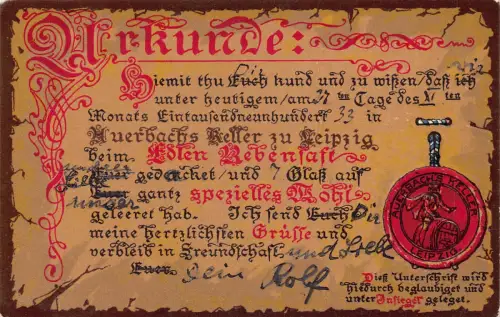 Urkunde:
Hiemit thu Euch kund und zu wißen/daß ich wir
unter heutigem/am 31 ten Tage des XI ten
Monats Eintausendneunhundert 33 in
Auerbachs Keller zu Leipzig
beim Edlen Rebensaft
Euer gedacket/und 7 Glaß auf
Euer unser gantz spezielles Wohl
geleeret hab. Ich send Euch Dir
meine hertzlichsten Grüße und
verbleib in Freundschaft. und Liebe
Euer. Dein Rolf
AUERBACHS KELLER
LEIPZIG
Dieß Unterschrift wird
hiedurch beglaubiget und
unter Insiegel geleget.